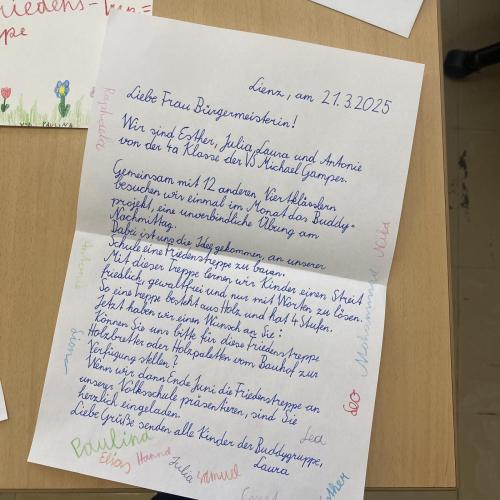 Friedens-
ppe
VON PAULINA
Lienz, am 21.3.2025
Liebe Frau Bürgermeisterin!
Wir sind Esther, Julia, Laura und Antonie
von der 4a Klasse der VS Michael Gamper.
Gemeinsam mit 12 anderen Viertklässlern
besuchen wir einmal im Monat das Buddy-
projekt, eine unverbindliche Übung am
Nachmittag.
Dabei ist uns die Idee gekommen, an unserer
Schule eine Friedenstreppe zu bauen.
Mit dieser Treppe lernen wir Kinder einen Streit
friedlich, gewaltfrei und nur mit Worten zu lösen.
So eine Treppe besteht aus Holz und hat 4 Stufen.
Jetzt haben wir einen Wunsch an Sie:
Können Sie uns bitte für diese Friedenstreppe
Holzbretter oder Holzpaletten vom Bauhof zur
Verfügung stellen?
Wenn wir dann Ende Juni die Friedenstreppe an
unserer Volksschule präsentieren, sind Sie
herzlich eingeladen.
Liebe Grüße senden alle Kinder der Buddygruppe,
Raphaela
Antonie
Simon
Paulina
Elias
Hanna
Julia
Samuel
Laura
Lea
Leo
Mohammad
Esther